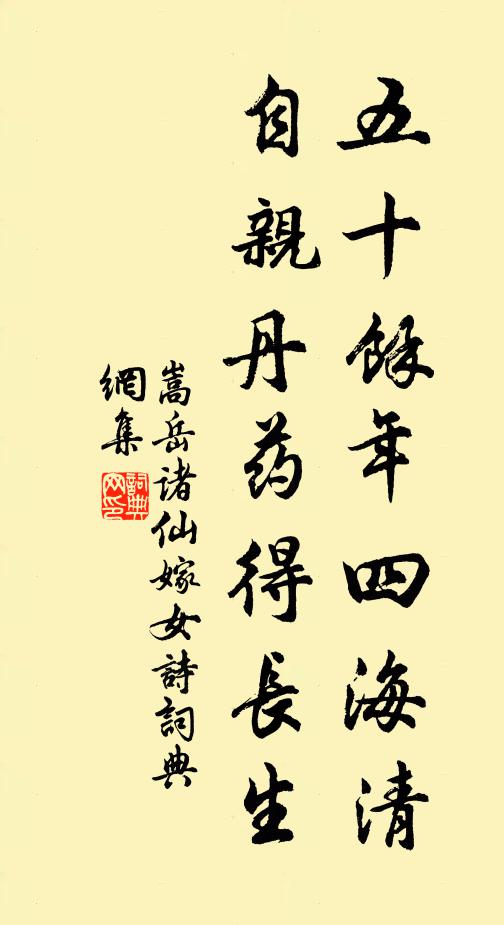 五十餘年四海清
自親丹药得長生
嵩岳诸仙嫁女詩詞典
網集
詞典
网印